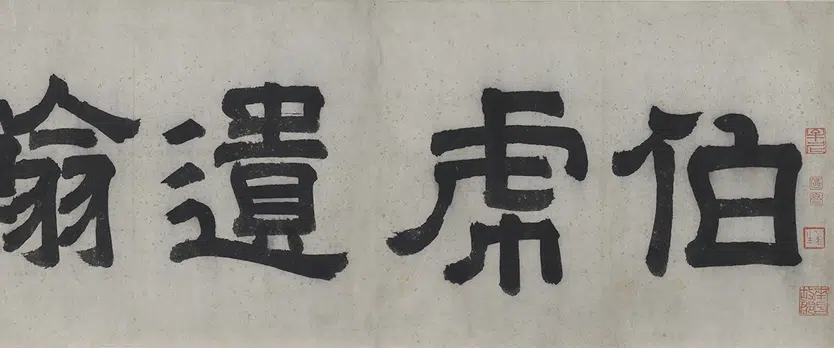 伯虎遺翰